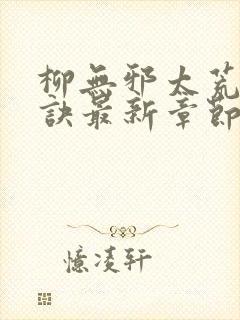 柳無邪太荒
訣最新章節
憶凌軒